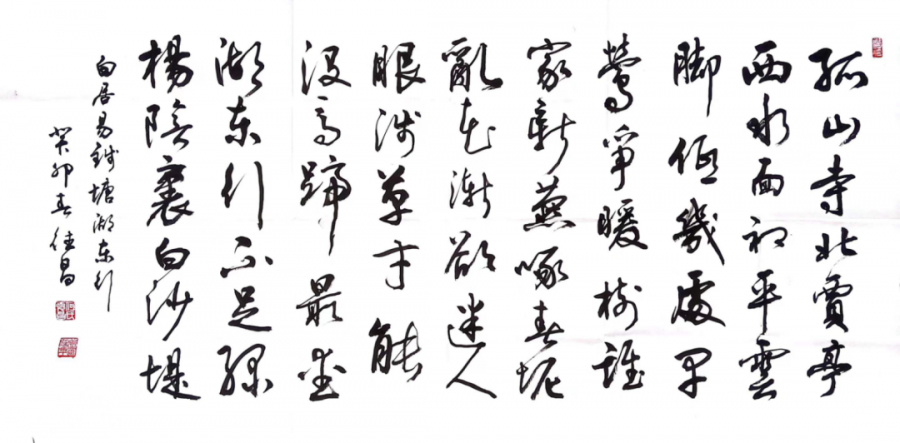 孤山寺北賈亭
西水面初平雲
脚低幾處早
鶯爭暖樹誰
家新燕啄春泥
亂花漸欲迷人
眼淺草才能
没馬蹄最愛
湖東行不足綠
楊陰裏白沙堤
白居易錢塘湖東行
癸卯春